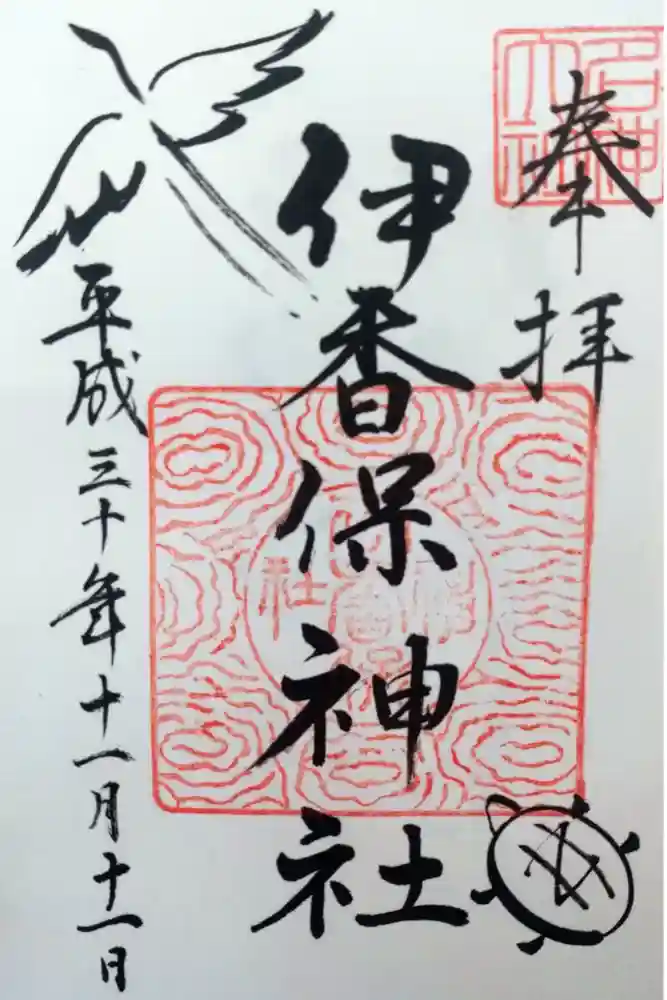 奉拝
名神
大社
伊香保神社
平成三十年十一月十一日